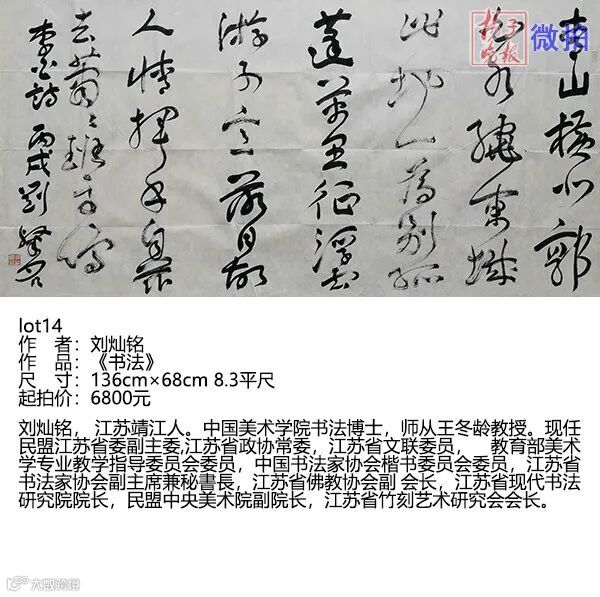 扬子晚报 微拍
青山橫北郭
白水繞東城
此地一為別孤
蓬萬里征浮雲
游子意落日故
人情揮手自茲
去蕭々班馬鳴
李白詩 丙戌劉燦銘
lot14
作 者：刘灿铭
作 品：《书法》
尺 寸：136cm×68cm 8.3平尺
起拍价：6800元
刘灿铭， 江苏靖江人。中国美术学院书法博士，师从王冬龄教授。现任
民盟江苏省委副主委,江苏省政协常委，江苏省文联委员， 教育部美术
学专业教学指导委员会委员，中国书法家协会楷书委员会委员，江苏省
书法家协会副主席兼秘書長，江苏省佛教协会副 会长，江苏省现代书法
研究院院长，民盟中央美术院副院长，江苏省竹刻艺术研究会会长。
大数跨境